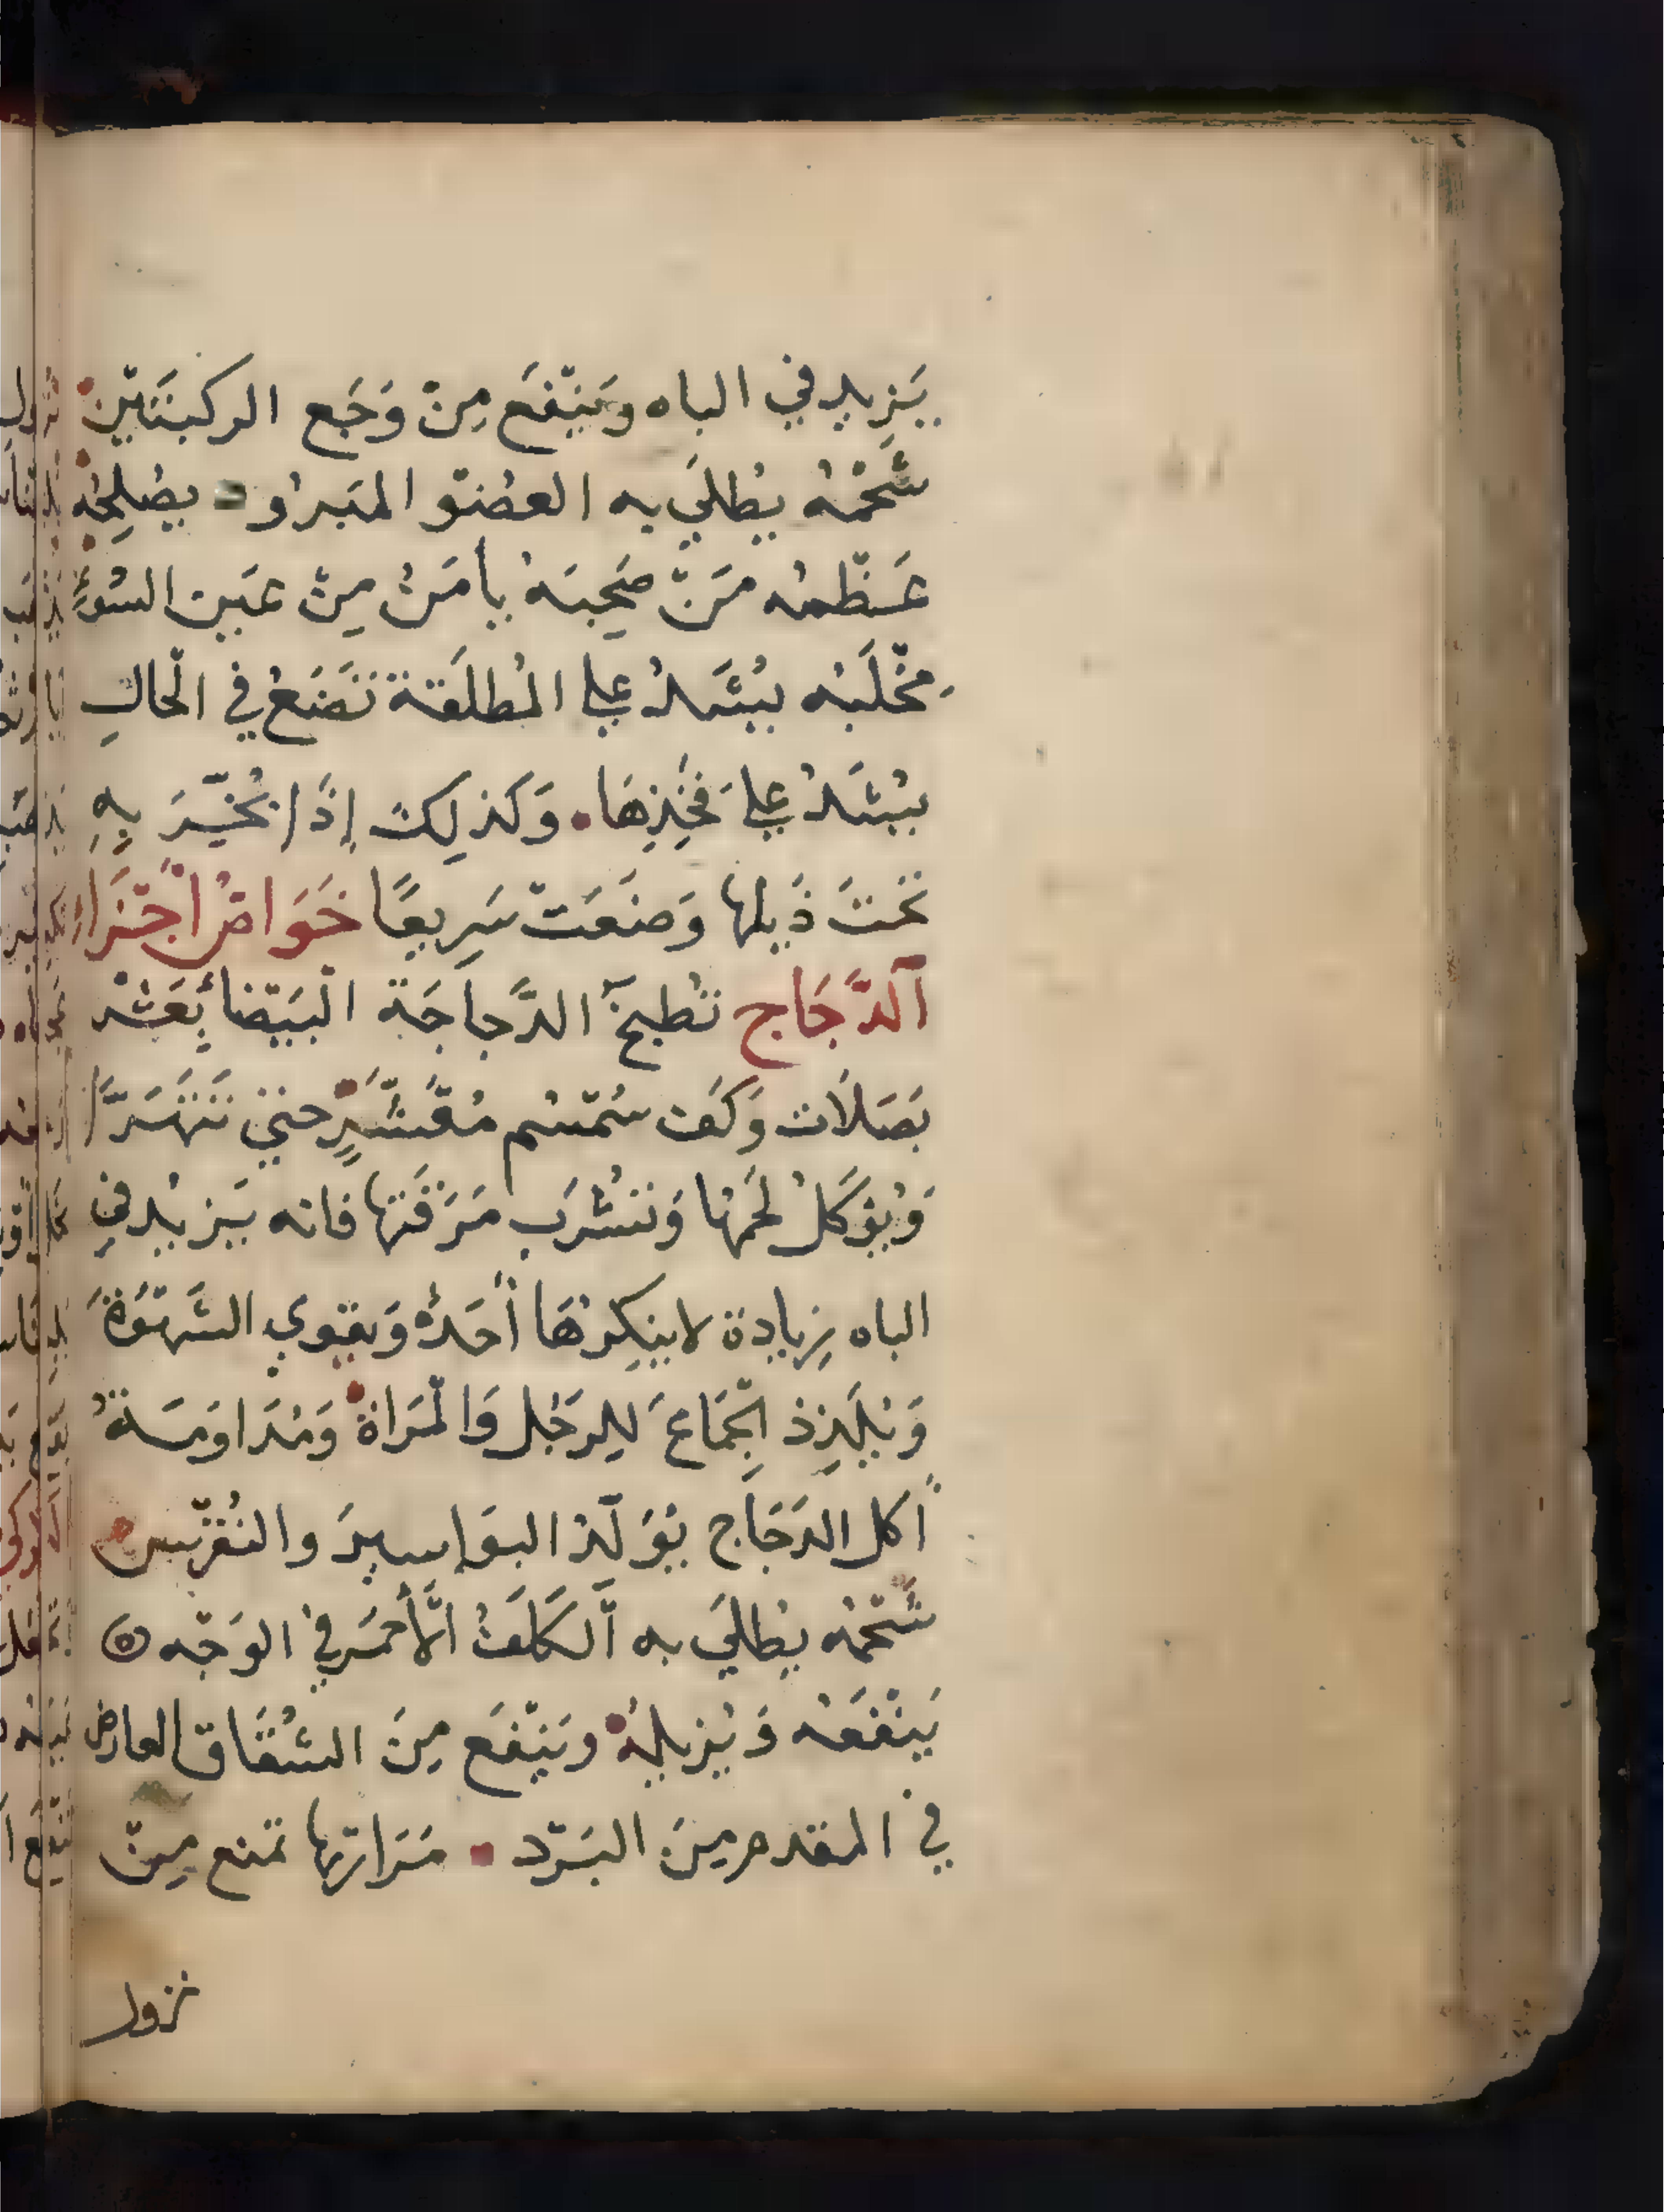 يَزيد في الباه وَيَنْفَع مِنْ وَجَع الركبَتَيْنْ
شَحْمُه يُطلَي به العُضْو المَبرُود يصْلِحُهْ
عَظْمُه مَنْ صَحِبَهُ يأمَنْ مِنْ عَيِن السُّوءْ
مِخْلَبُه يُشَدُّ علي المُطلَقَة تَضَعُ في الْحَالِ
يُشَدُّ عليَ فَخِذِهَا. وَكَذلِكَ إِذَا بُخِّرَ بِهِ
تَحتَ ذَيلها وَضَعَتْ سَرِيعًا خَوَاصُ اجْزَاءِ
اَلدَّجَاج تُطبخَ الدَّجاَجَة الْبَيْضَا بِعَشْر
بَصَلَات وَكَف سُمْسُم مُقَشَّرٍ حتي تَتَهَرَّا
وَيُؤكَلُ لَحمُها وَتُشْرَب مَرَقَتها فانه يَزيْد في
الباه زِيادة لا ينكِرُهَا أَحَدٌ وَيقوي الشَّهْوَةَ
وَيُلَذِذ الْجِمَاعَ لِلرَجُل وَالْمَرَاةْ وَمُدَاوَمَةُ
أكل الدَجَاج يُوَلّدُ البوَاسيرَ والنُقْرِسْ
شَحْمُه يُطلَي به اَلْكَلَفُ الْأَحمَر في الوَجْه ۞
يَنْفَعُه وَيُزيلُهْ وَيَنْفَع مِنَ الشُقَاق العارض
في المقدم مِنَ البَرْد. مَرَارتها تمنع مِنْ
نزول